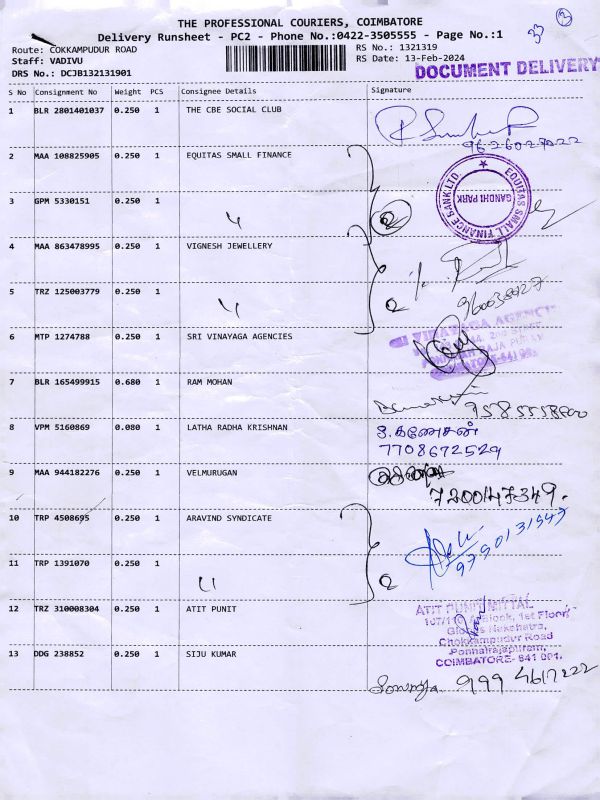 THE PROFESSIONAL COURIERS, COIMBATORE
Delivery Runsheet - PC2 - Phone No.:0422-3505555 - Page No.:1
Route: COKKAMPUDUR ROAD
Staff: VADIVU
DRS No.: DCJB132131901
RS No.: 1321319
RS Date: 13-Feb-2024
DOCUMENT DELIVERY
S No Consignment No Weight PCS Consignee Details Signature
1 BLR 2801401037 0.250 1 THE CBE SOCIAL CLUB
2 MAA 108825905 0.250 1 EQUITAS SMALL FINANCE
EQUITAS SMALL FINANCE BANK LTD.
GANDHI PARK
3 GPM 5330151 0.250 1 〃
2
4 MAA 863478995 0.250 1 VIGNESH JEWELLERY
5 TRZ 125003779 0.250 1 〃
2
6 MTP 1274788 0.250 1 SRI VINAYAGA AGENCIES
7 BLR 165499915 0.680 1 RAM MOHAN
8 VPM 5160869 0.080 1 LATHA RADHA KRISHNAN
உ.கணேசன்
7708672529
9 MAA 944182276 0.250 1 VELMURUGAN
7200147349.
10 TRP 4508695 0.250 1 ARAVIND SYNDICATE
9790131547
11 TRP 1391070 0.250 1 〃
2
12 TRZ 310008304 0.250 1 ATIT PUNIT
ATIT PUNIT MITTAL
Block, 1st Floor
Nakshatra,
Chokkampudur Road
Ponnairajapuram,
COIMBATORE- 641 001.
13 DDG 238852 0.250 1 SIJU KUMAR
999 4617222